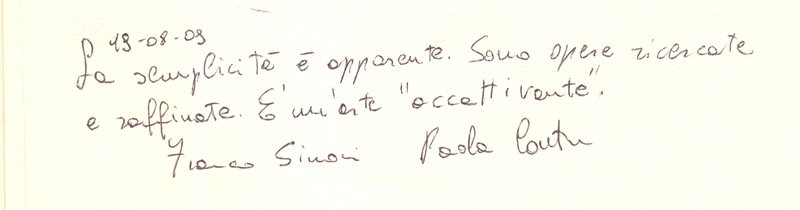 19-08-09
La semplicità è apparente. Sono opere ricercate
e raffinate. E' un'arte "accattivante".
Franco Simoni Paola